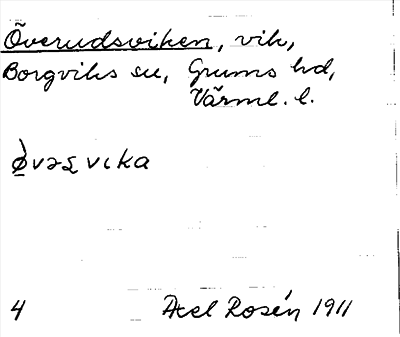 Överudsviken, vik,
Borgviks sn, Grums hd,
Värml. l.
4 Axel Rosén 1911